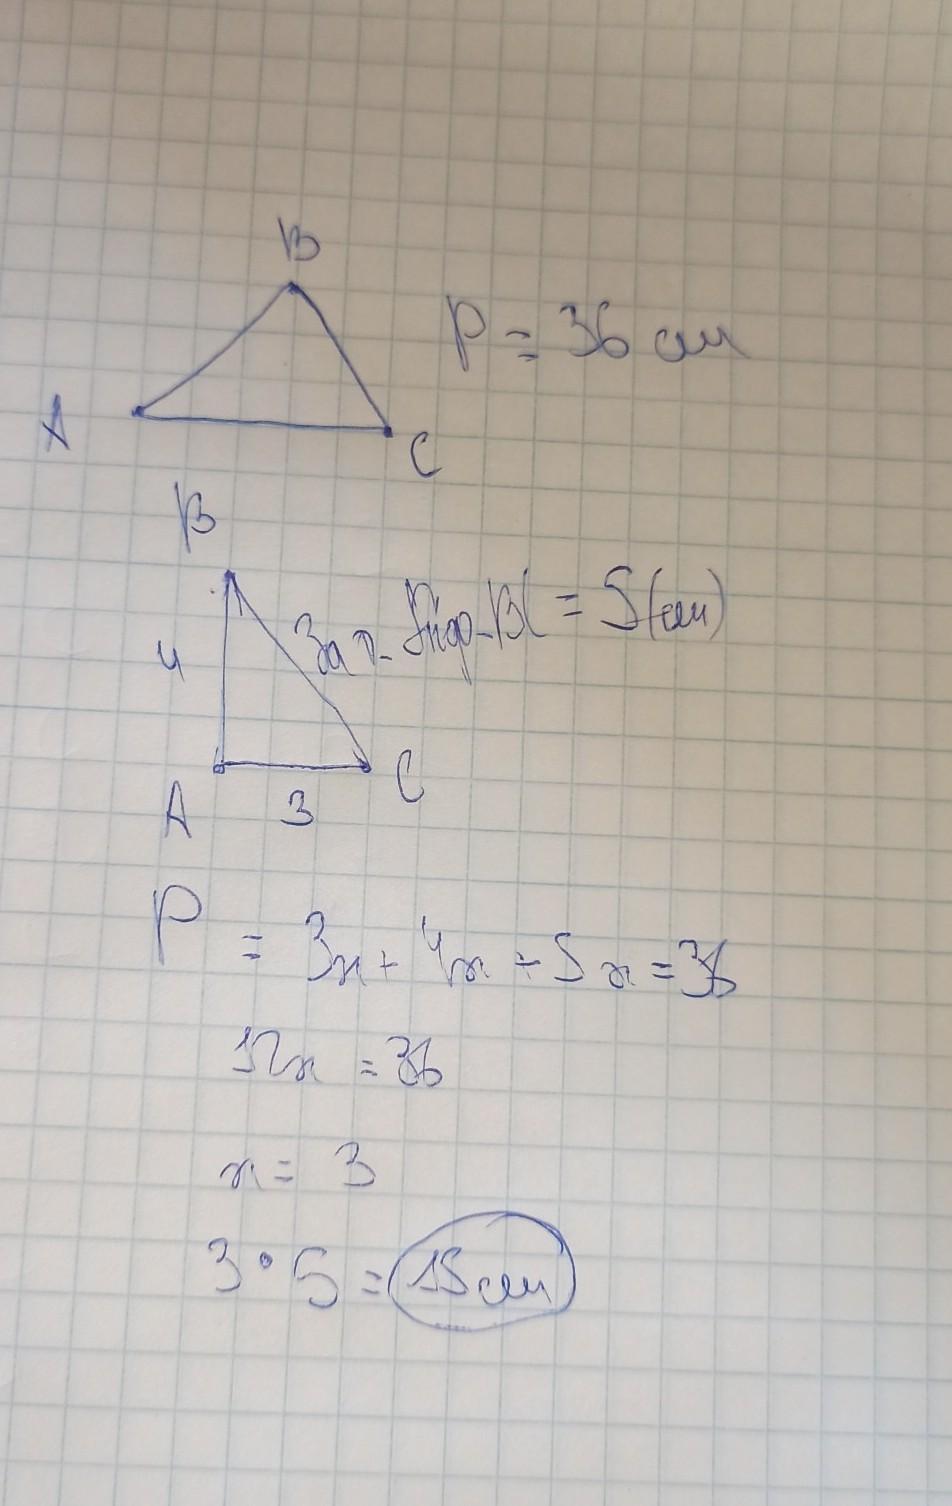 B
P = 36 см
A
C
B
За т. Піф. BC = 5(см)
4
A
3
C
P = 3x + 4x + 5x = 36
12x = 36
x = 3
3 • 5 = 15 см